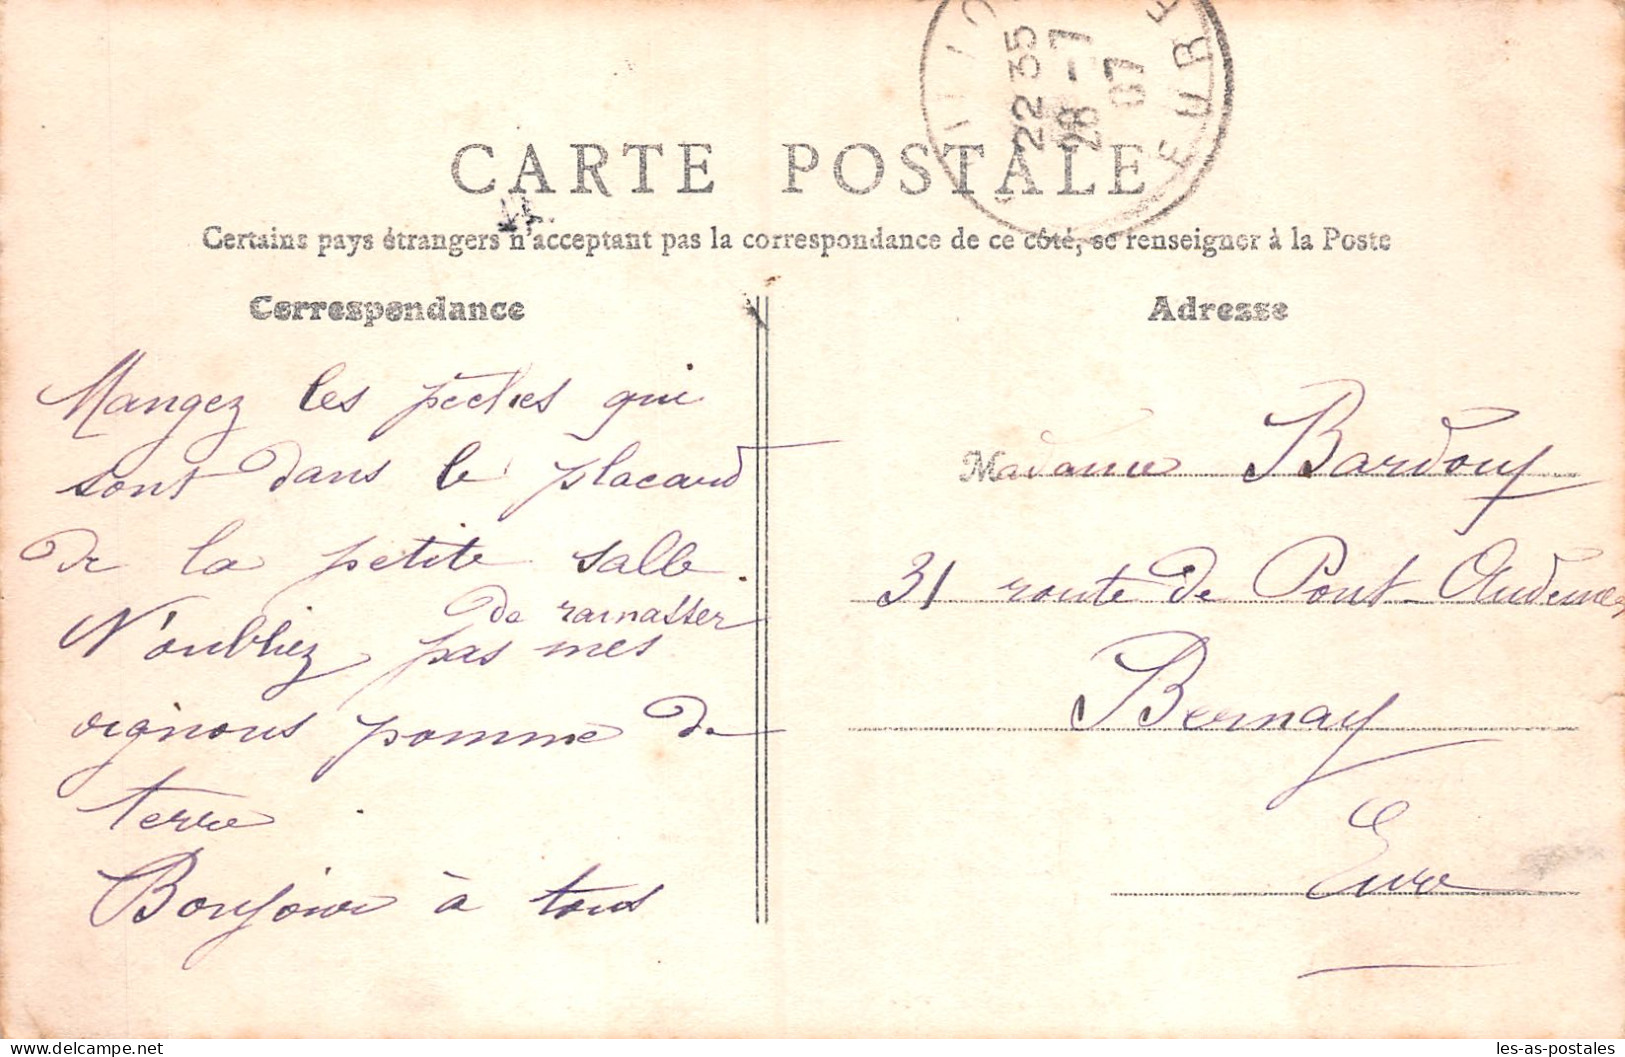 22 35
28 - 7
07
EURE
CARTE POSTALE
Certains pays étrangers n'acceptant pas la correspondance de ce côté, se renseigner à la Poste
Correspondance
Adresse
Mangez les pèches qui
sont dans le placard
de la petite salle
de ramasser
N'oubliez pas mes
oignous pomme de
terre
Bonjour à tous
Madame Bardouy
31 route de Pont-Audemer
Bernay
Eure
delcampe.net
les-as-postales